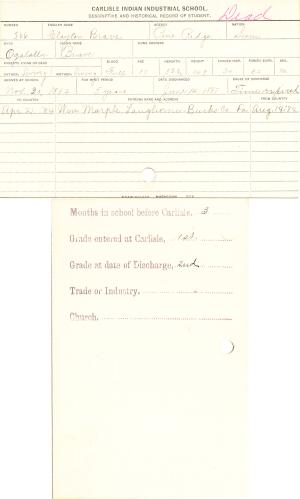 CARLISLE INDIAN INDUSTRIAL SCHOOL.
DESCRIPTIVE AND HISTORICAL RECORD OF STUDENT. Dead
NUMBER ENGLISH NAME AGENCY NATION
Clayton Brave Pine Ridge Sioux
BAND INDIAN NAME HOME ADDRESS
Ogalalla Brave
PARENTS LIVING OR DEAD BLOOD AGE HEIGHT WEIGHT FORCED INSP. FORCED EXPR. SEX
FATHER Living MOTHER Living Full
ARRIVED AT SCHOOL FOR WHAT PERIOD DATE DISCHARGED CAUSE OF DISCHARGE
Nov. 20, 1882 5 years June 1887 Time expired
TO COUNTRY PATRONS NAME AND ADDRESS FROM COUNTRY
Apr. 2, '84 Wm. Marple, Langhorne Bucks Co. Pa. Aug.
Months in school before Carlisle, 3
Grade entered at Carlisle, 1st.
Grade at date of Discharge, 2nd
Trade or Industry,
Church,